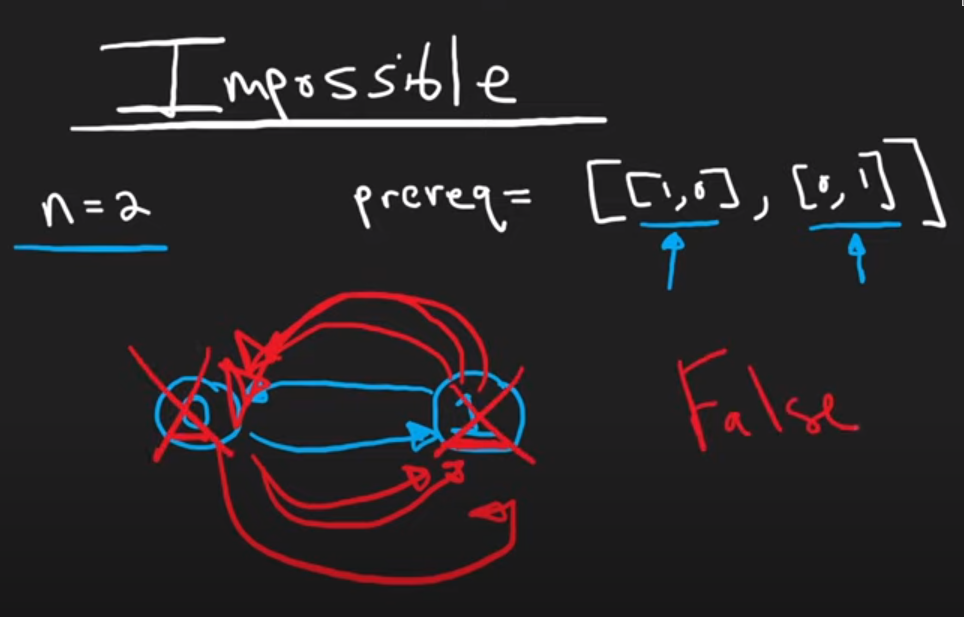 Impossible
n=2 prereq= [[1,0], [0,1]]
0 1
False